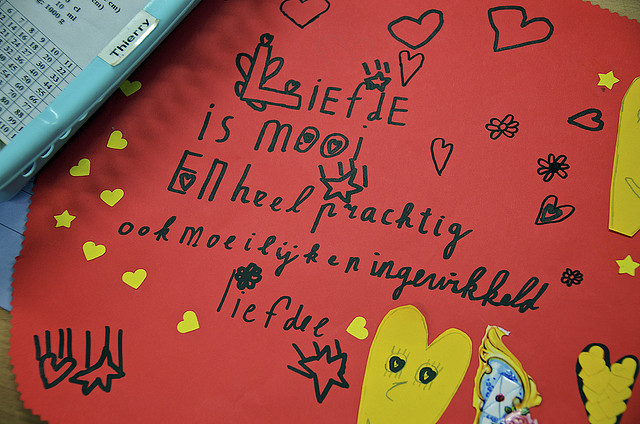 Thierry
LiEfdE
is mooi
En heel prachtig
ook moeilijk en ingewikkeld
liefdee